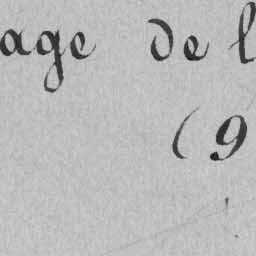 age de l
(9